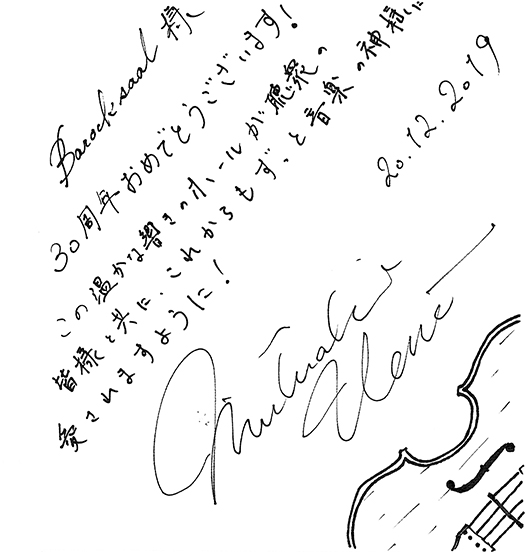 Barocksaal 様
30周年おめでとうございます!
この温かな響きのホールが聴衆の
皆様と共に、これからもずっと音楽の神様に
愛されますように!
20.12.2019